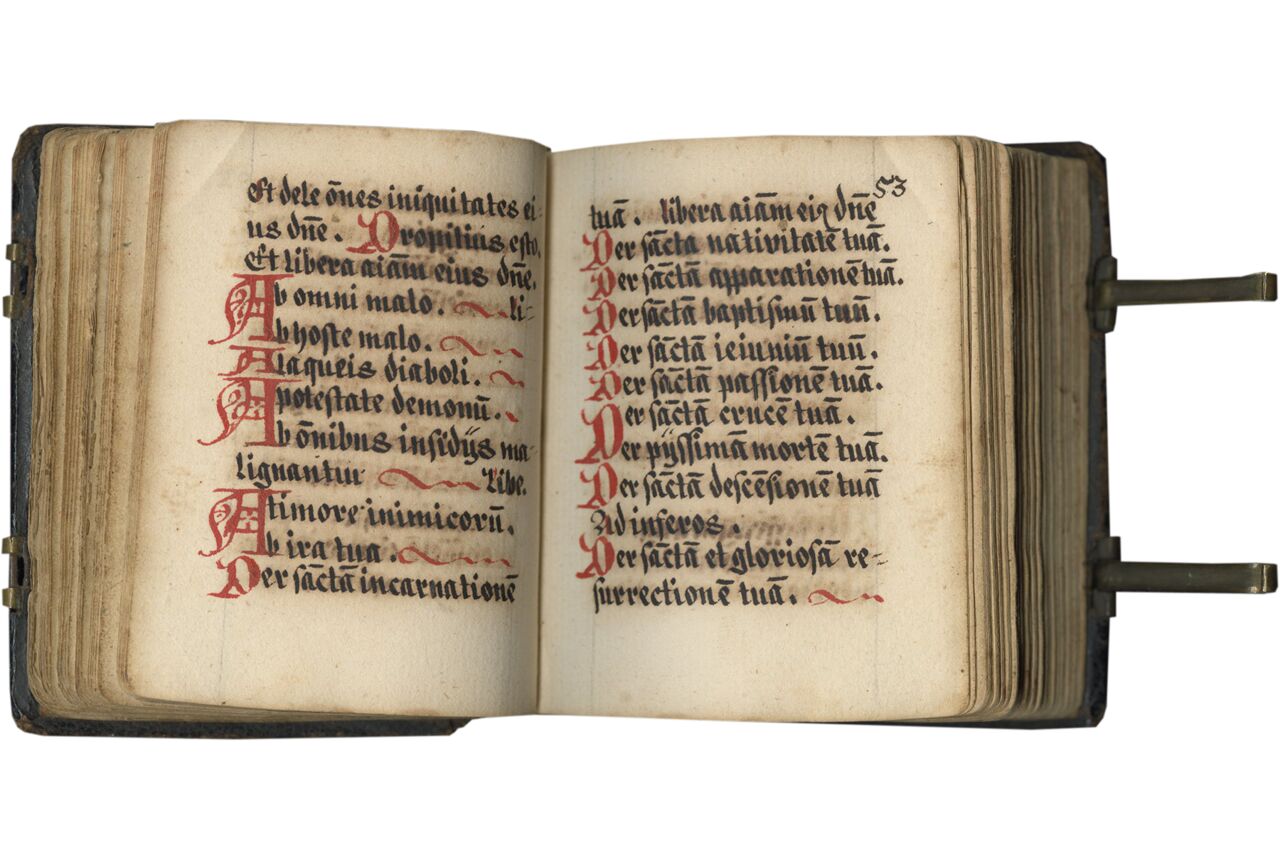 Et dele ōnes iniquitates ei-
us dn̄e. Propitius esto.
Et libera aiām eius dn̄e.
Ab omni malo. li-
Ab hoste malo.
A laqueis diaboli.
A potestate demonū.
Ab ōnibus insidijs ma-
lignantiu Libe.
A timore inimicorū.
Ab ira tua.
Per sāctā incarnationē
53
tuā. libera aiām eiꝰ dn̄e
Per sācta nativitatē tuā.
Per sāctā apparationē tuā.
Per sāctā baptismū tuū.
Per sāctā ieiuniū tuū.
Per sāctā passionē tuā.
Per sāctā crucē tuā.
Per pijssimā mortē tuā.
Per sāctā descēsionē tuā
Ad inferos.
Per sāctā et gloriosā re-
surrectionē tuā.